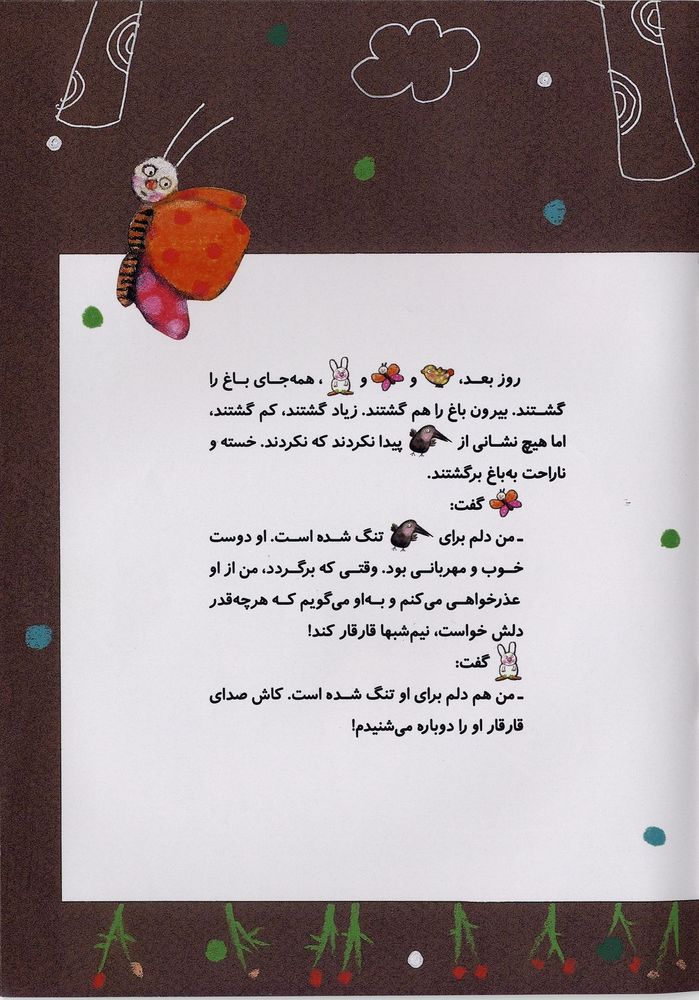 روز بعد، و و ، همه‌جای باغ را
گشتند. بیرون باغ را هم گشتند. زیاد گشتند، کم گشتند،
اما هیچ نشانی از پیدا نکردند که نکردند. خسته و
ناراحت به‌باغ برگشتند.
گفت:
ـ من دلم برای تنگ شده است. او دوست
خوب و مهربانی بود. وقتی که برگردد، من از او
عذرخواهی می‌کنم و به‌او می‌گویم که هرچه‌قدر
دلش خواست، نیم‌شبها قارقار کند!
گفت:
ـ من هم دلم برای او تنگ شده است. کاش صدای
قارقار او را دوباره می‌شنیدم!